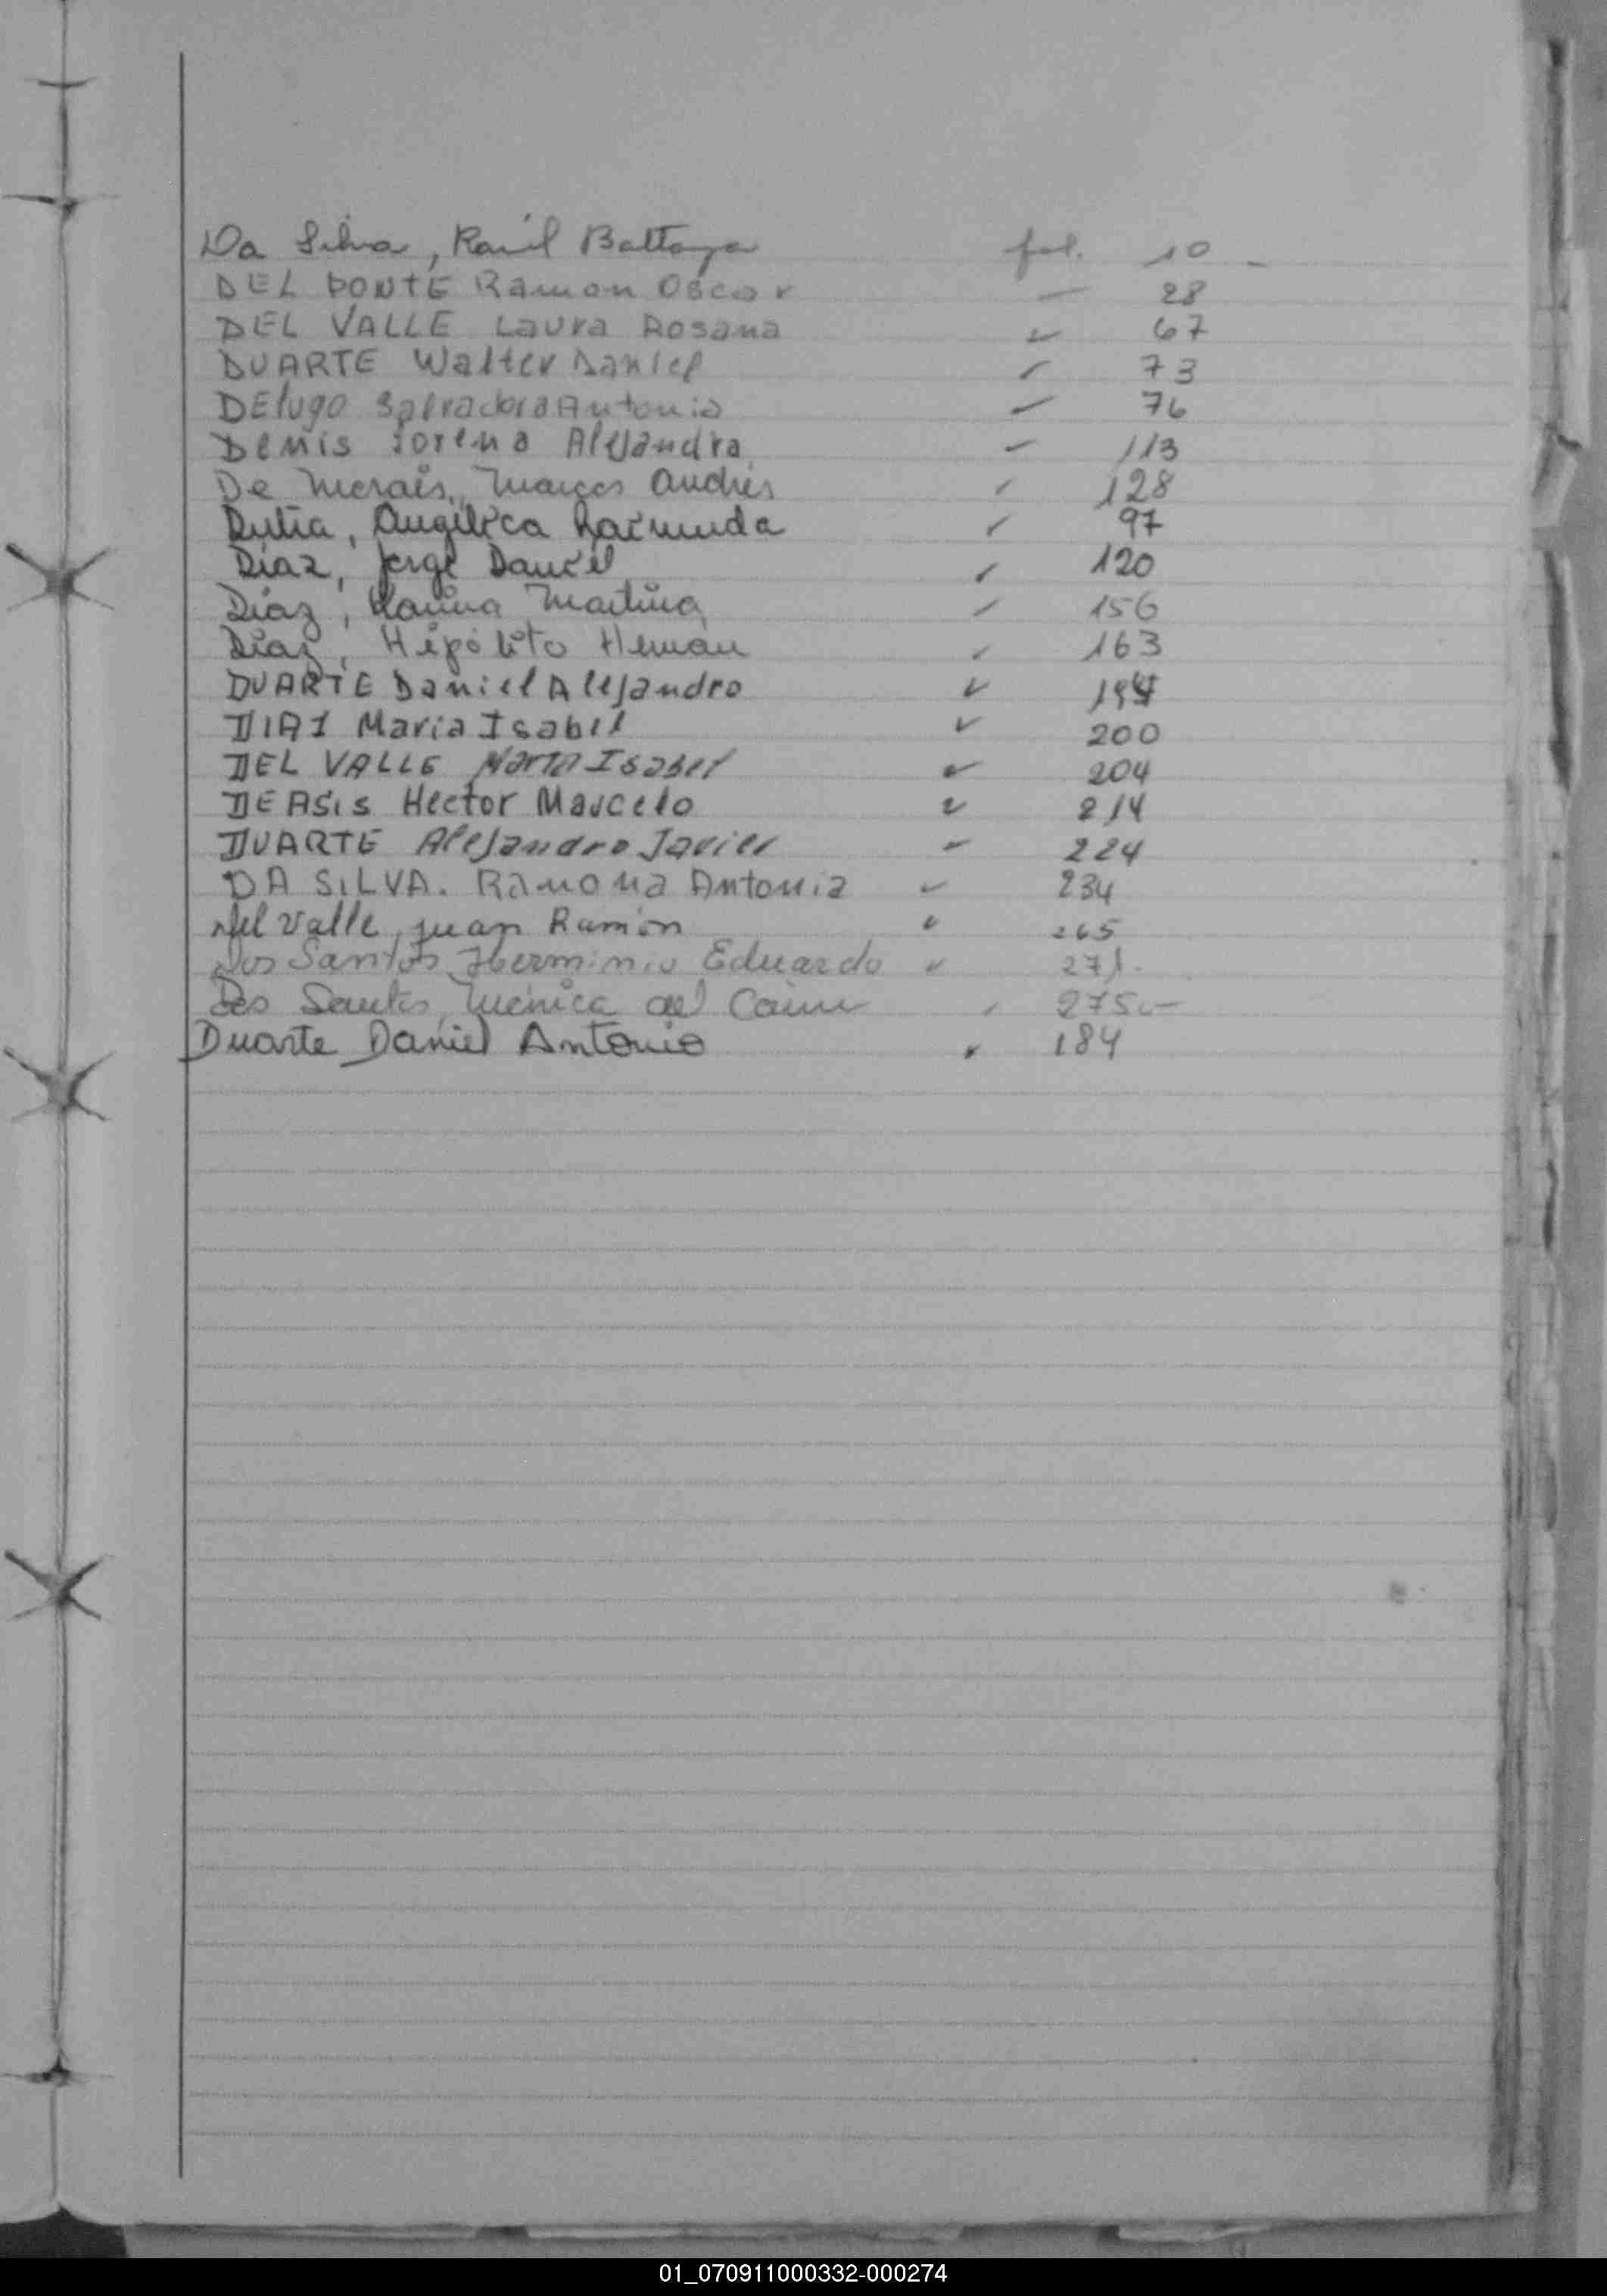 Da Silva, Raúl Battaya fol. 10 -
DEL PONTE Ramon Oscar - 28
DEL VALLE Laura Rosana 67
DUARTE Walter Daniel 73
DElugo Salvadora Antonia 76
DEnis Lorena Alejandra 113
De Morais, Marcos Andrés 128
Dutra, Angélica Raimunda 97
Díaz, Jorge Daniel 120
Díaz, Karina Martina 156
Díaz, Hipólito Hernan 163
DUARTE Daniel Alejandro
DIAZ Maria Isabel 200
DEL VALLE Maria Isabel 204
DE ASis Hector Marcelo 214
DUARTE Alejandro Javier 224
DA SiLVA. Ramona Antonia 234
del Valle, Juan Ramón 265
Dos Santos, Herminio Eduardo 271.
Dos Santos, Mónica del Carm 275.-
Duarte Daniel Antonio 184
01_070911000332-000274